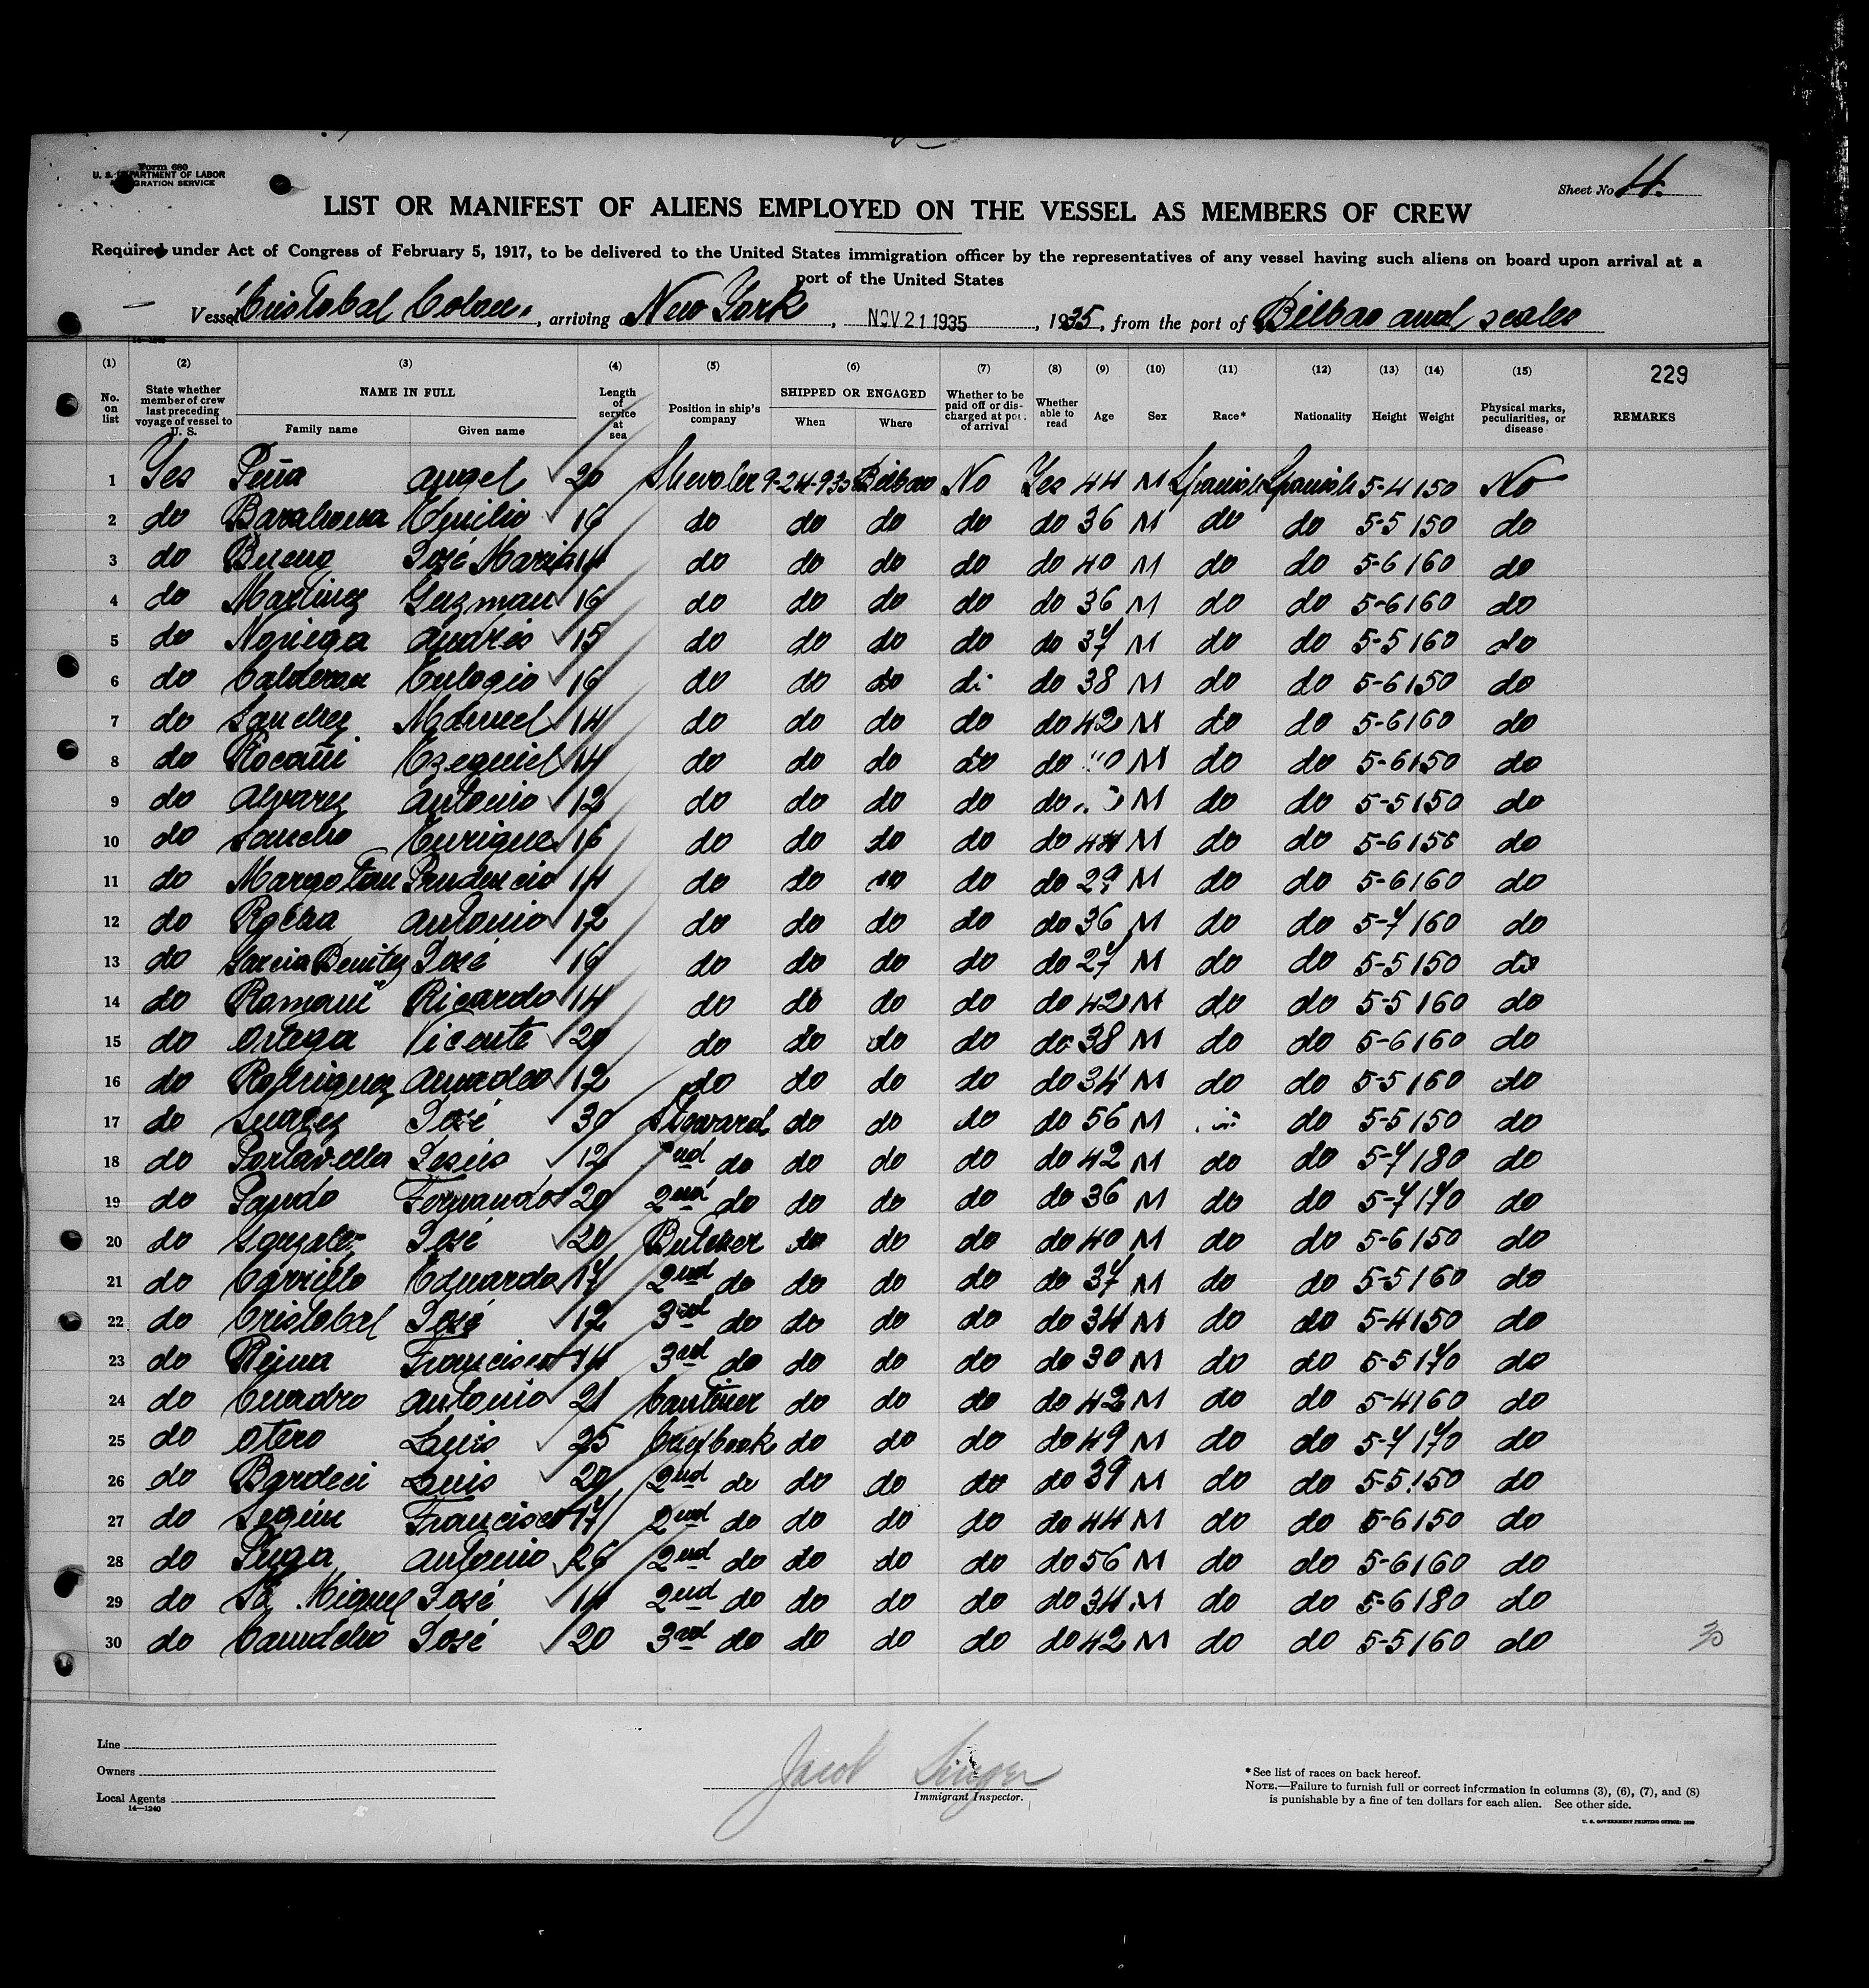 Form 680
U. S. DEPARTMENT OF LABOR
IMMIGRATION SERVICE
Sheet No. 4.
LIST OR MANIFEST OF ALIENS EMPLOYED ON THE VESSEL AS MEMBERS OF CREW
Required under Act of Congress of February 5, 1917, to be delivered to the United States immigration officer by the representatives of any vessel having such aliens on board upon arrival at a
port of the United States
Vessel Cristobal Colon, arriving at New York, NOV 21 1935, 1935, from the port of Bilbao and scales
(1) (2) (3) (4) (5) (6) (7) (8) (9) (10) (11) (12) (13) (14) (15) 229
No. on list State whether member of crew last preceding voyage of vessel to U. S. NAME IN FULL Family name Given name Length of service at sea Position in ship's company SHIPPED OR ENGAGED When Where Whether to be paid off or discharged at port of arrival Whether able to read Age Sex Race* Nationality Height Weight Physical marks, peculiarities, or disease REMARKS
1 Yes Peña Angel 20 9-24-935 Bilbao No Yes 44 M Spanish Spanish 5-4 150 No
2 do Barahona Emilio 16 do do do do do 36 M do do 5-5 150 do
3 do Bueno José Maria 14 do do do do do 40 M do do 5-6 160 do
4 do Martinez Guzman 16 do do do do do 36 M do do 5-6 160 do
5 do Noriega Andrés 15 do do do do do 37 M do do 5-5 160 do
6 do Calderon Eulogio 16 do do do do do 38 M do do 5-6 150 do
7 do Sanchez Manuel 14 do do do do do 42 M do do 5-6 160 do
8 do Ezequiel 14 do do do do do M do do 5-6 150 do
9 do Alvarez Antonio 12 do do do do do M do do 5-5 150 do
10 do Sancho Enrique 16 do do do do do 44 M do do 5-6 150 do
11 do Prudencio 14 do do do do do 29 M do do 5-6 160 do
12 do Antonio 12 do do do do do 36 M do do 5-7 160 do
13 do Garcia Benitez José 16 do do do do do 27 M do do 5-5 150 do
14 do Romani Ricardo 14 do do do do do 42 M do do 5-5 160 do
15 do Ortega Vicente 20 do do do do do 38 M do do 5-6 160 do
16 do Rodriguez Amadeo 12 do do do do do 34 M do do 5-5 160 do
17 do Suarez José 30 Steward do do do do 56 M do 5-5 150 do
18 do Portavella Jesús 12 2nd do do do do do 42 M do do 5-7 180 do
19 do Pando Fernando 20 2nd do do do do do 36 M do do 5-7 170 do
20 do Gonzalez José 20 Butcher do do do do 40 M do do 5-6 150 do
21 do Carrillo Eduardo 17 2nd do do do do do 37 M do do 5-5 160 do
22 do Cristobal José 12 3rd do do do do do 34 M do do 5-4 150 do
23 do Francisco 14 3rd do do do do do 30 M do do 5-5 170 do
24 do Cuadro Antonio 21 do do do do 42 M do do 5-4 160 do
25 do Otero Luis 25 Chief Cook do do do do 49 M do do 5-7 170 do
26 do Bardeci Luis 20 2nd do do do do do 39 M do do 5-5 150 do
27 do Seguin Francisco 17 2nd do do do do do 44 M do do 5-6 150 do
28 do Puga Antonio 26 2nd do do do do do 56 M do do 5-6 160 do
29 do Miguel José 14 2nd do do do do do 34 M do do 5-6 180 do
30 do José 20 3rd do do do do do 42 M do do 5-5 160 do
30
Line
Owners
Local Agents
14—1240
Jacob Singer
Immigrant Inspector.
*See list of races on back hereof.
NOTE.—Failure to furnish full or correct information in columns (3), (6), (7), and (8)
is punishable by a fine of ten dollars for each alien. See other side.